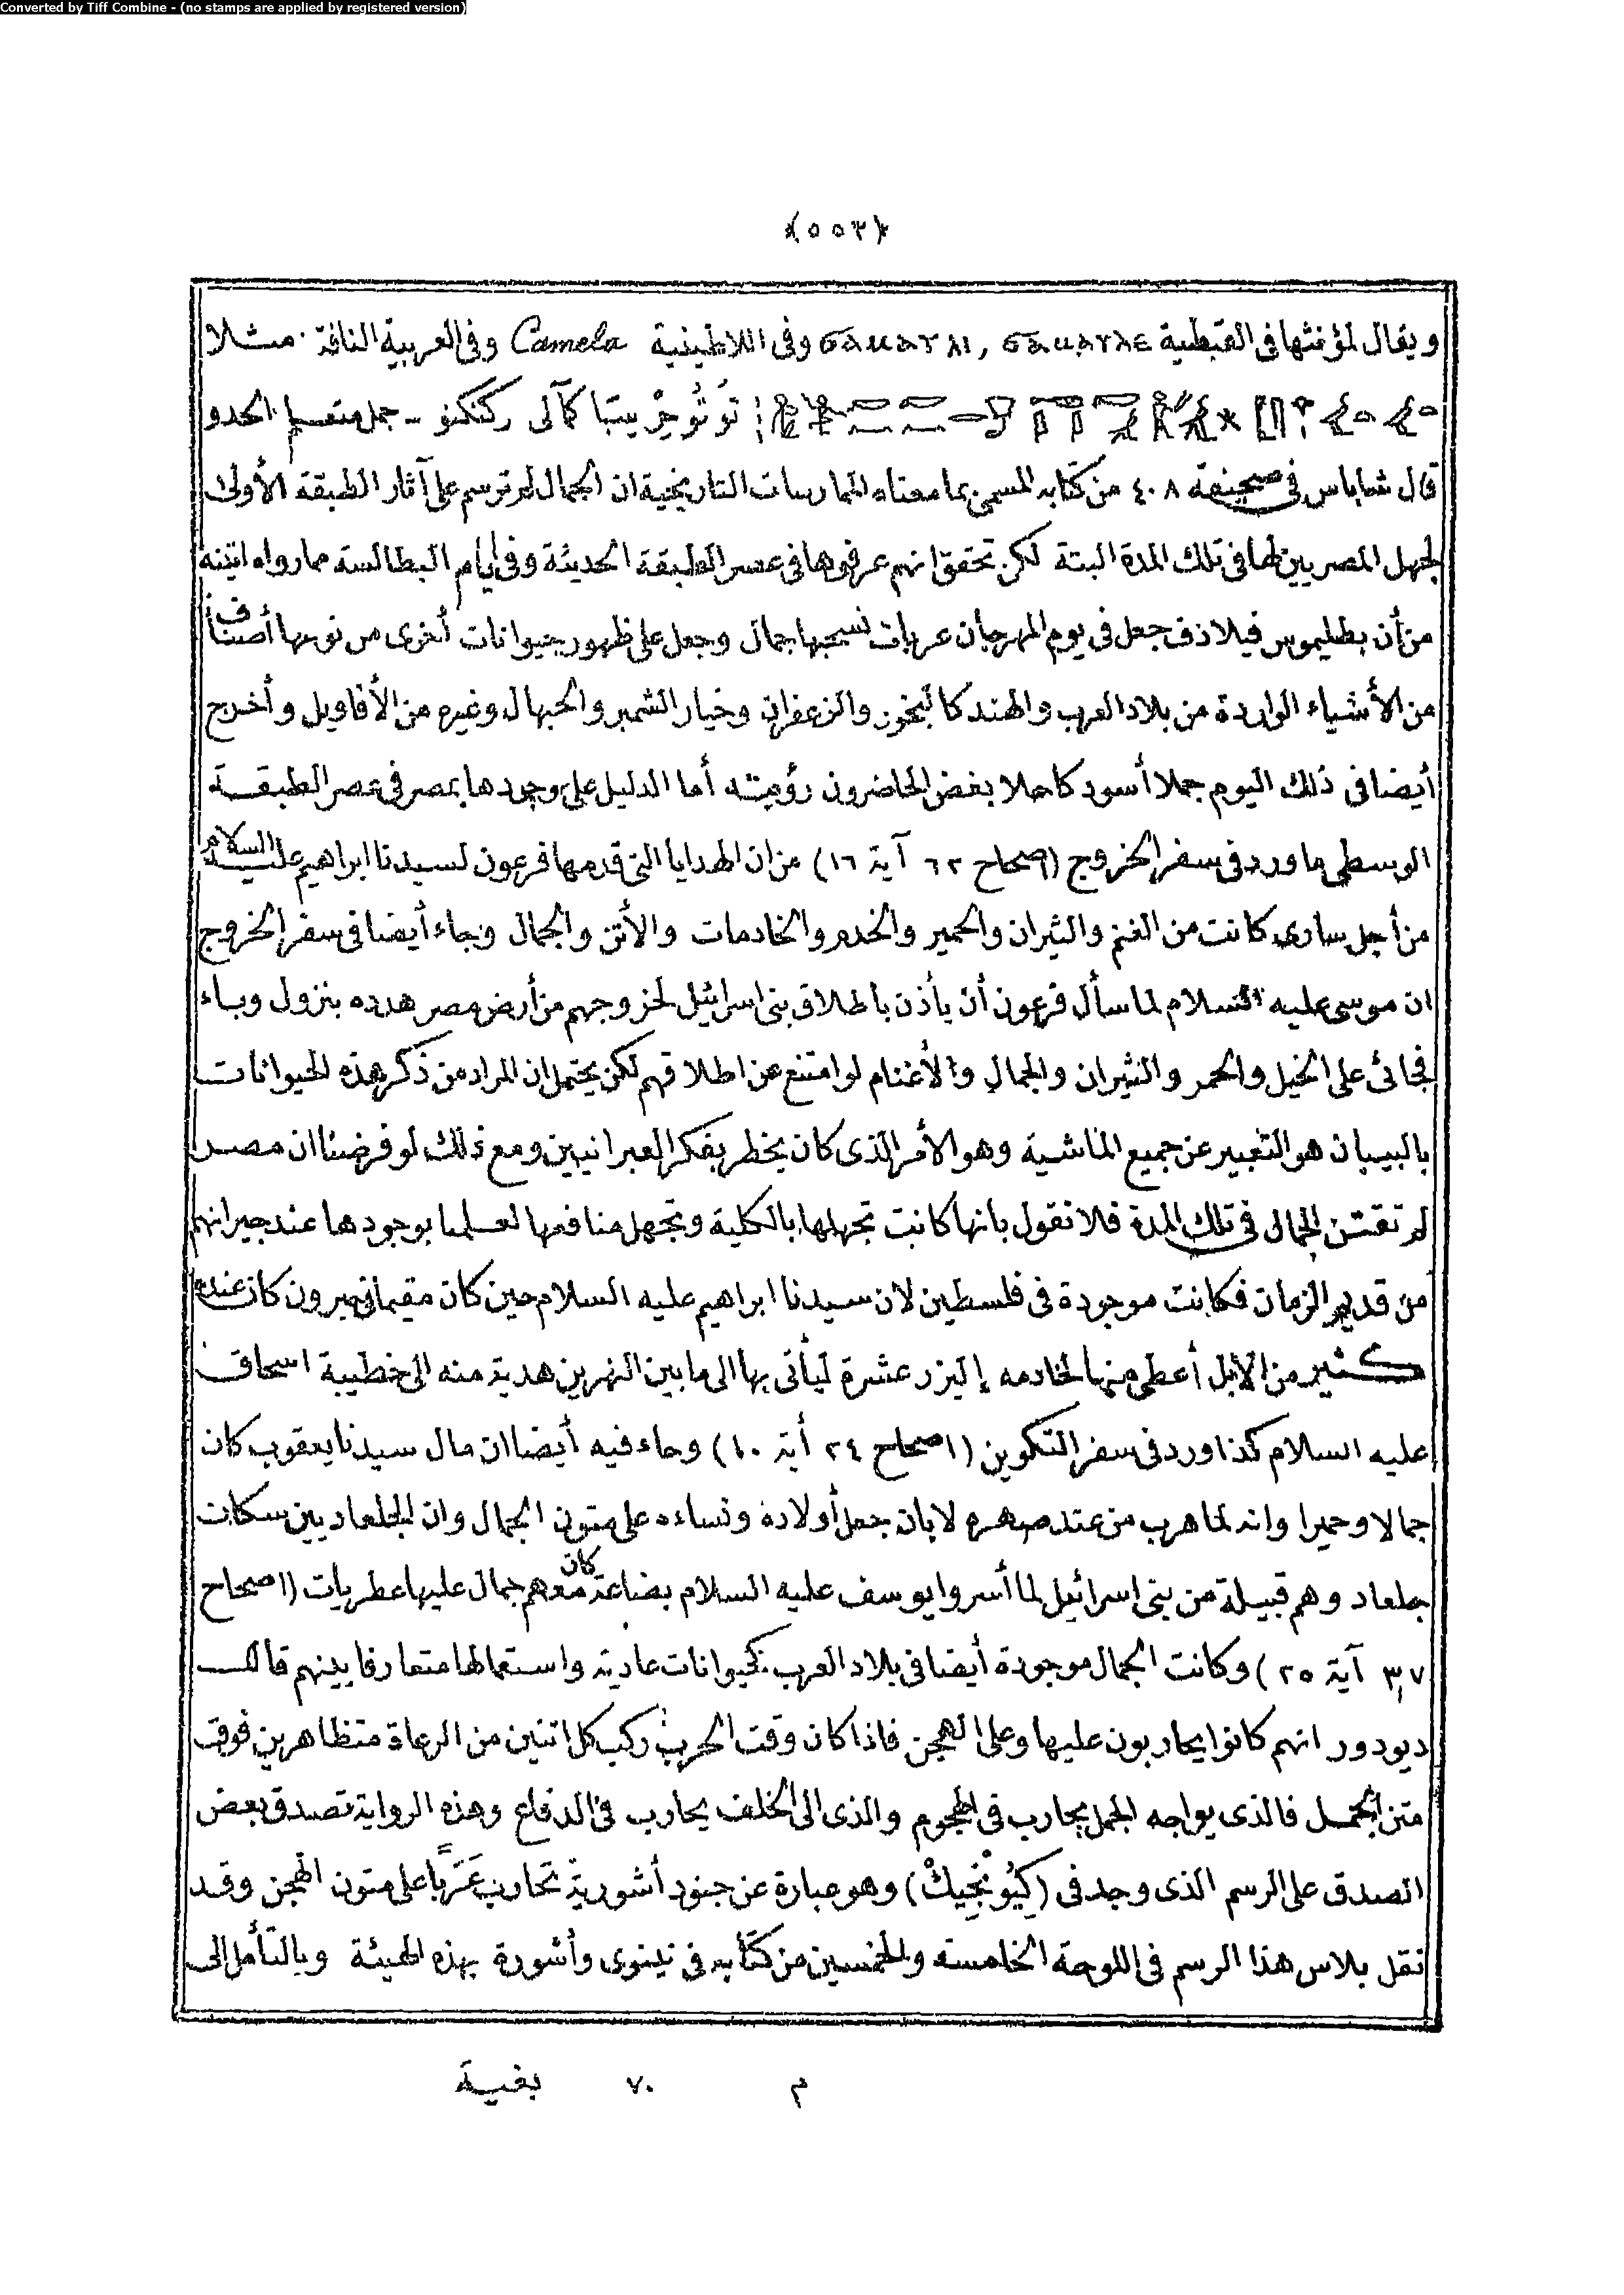 Converted by Tiff Combine - (no stamps are applied by registered version)
﴿٥٥٣﴾
ويقال لمؤنثها فى القبطية ϭⲁⲙⲁⲩⲗⲉ ,ϭⲁⲙⲁⲩⲗⲓ وفى اللاطينية Camela وفى العربية الناقة مثلا
تَوتُوجِرْ بيتبَا كآلى ركنكنو - جمل متعلم الحدو
قال شاباس فى صحيفة ٤٠٨ من كتابه المسمى بما معناه الممارسات التاريخية ان الجمال لم ترسم على آثار الطبقة الأولى
لجهل المصريين لها فى تلك المدة البتة لكن تحقق انهم عرفوها فى عصر الطبقة الحديثة وفى أيام البطالسة مما رواه اتينه
من أن بطليموس فيلاذف جعل فى يوم المهرجان عربات تسحبها جمال وجعل على ظهور حيوانات أخرى من نوعها أصنافا
من الأشياء الواردة من بلاد العرب والهند كالبخور والزعفران وخيار الشمبر والحبهال وغيره من الأفاويل وأخرج
أيضا فى ذلك اليوم جملا أسود كاملا بغض الحاضرون رؤيته أما الدليل على وجودها بمصر فى عصر الطبقة
الوسطى ما ورد فى سفر الخروج (اصحاح ٦٢ آية ١٦) من ان الهدايا التى قدمها فرعون لسيدنا ابراهيم عليه السلام
من أجل سارى كانت من الغنم والثيران والحمير والخدم والخادمات والأتن والجمال وجاء أيضا فى سفر الخروج
ان موسى عليه السلام لما سأل فرعون أن يأذن باطلاق بنى اسرائيل لخروجهم من أرض مصر هدده بنزول وباء
فجائى على الخيل والحمر والثيران والجمال والأغنام لو امتنع عن اطلاقهم لكن يحتمل ان المراد من ذكر هذه الحيوانات
بالبيان هو التعبير عن جميع الماشية وهو الأمر الذى كان يخطر بفكر العبرانيين ومع ذلك لو فرضنا ان مصر
لم تقتن الجمال فى تلك المدة فلا نقول بانها كانت تجهلها بالكلية وتجهل منافعها لعلمنا بوجودها عند جيرانهم
من قديم الزمان فكانت موجودة فى فلسطين لان سيدنا ابراهيم عليه السلام حين كان مقيما فى حبرون كان عنده
كثير من الابل أعطى منها لخادمه إليزر عشرة ليأتى بها الى ما بين النهرين هدية منه الى خطيبة اسحاق
عليه السلام كذا ورد فى سفر التكوين (اصحاح ٢٤ أية ١٠) وجاء فيه أيضا ان مال سيدنا يعقوب كان
جمالا وحميرا وانه لما هرب من عند صهره لابان جعل أولاده ونساءه على متون الجمال وان الجلعاديين سكان
جلعاد وهم قبيلة من بنى اسرائيل لما أسروا يوسف عليه السلام بضاعة كان معهم جمال عليها عطريات (اصحاح
٣٧ آية ٢٥) وكانت الجمال موجودة أيضا فى بلاد العرب كحيوانات عادية واستعمالها متعارفا بينهم قال
ديودور انهم كانوا يحاربون عليها وعلى الهجن فاذا كان وقت الحرب ركب كل اثنين من الرعاة متظاهرين فوق
متن الجمل فالذى يواجه الجمل يحارب فى الهجوم والذى الى الخلف يحارب فى الدفاع وهذه الرواية تصدق بعض
الصدق على الرسم الذى وجد فى (كِيُونْجِيكْ) وهو عبارة عن جنود أشورية تحارب عَرَبًا على متون الهجن وقد
نقل بلاس هذا الرسم فى اللوحة الخامسة والخمسين من كتابه فى نينوى وأشورة بهذه الهيئة وبالتأمل الى
م ٧٠ بغية